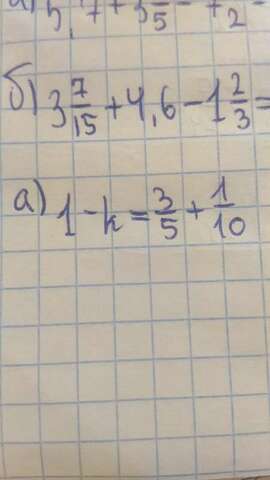 б) 3 7/15 + 4,6 - 1 2/3 =
а) 1 - k = 3/5 + 1/10